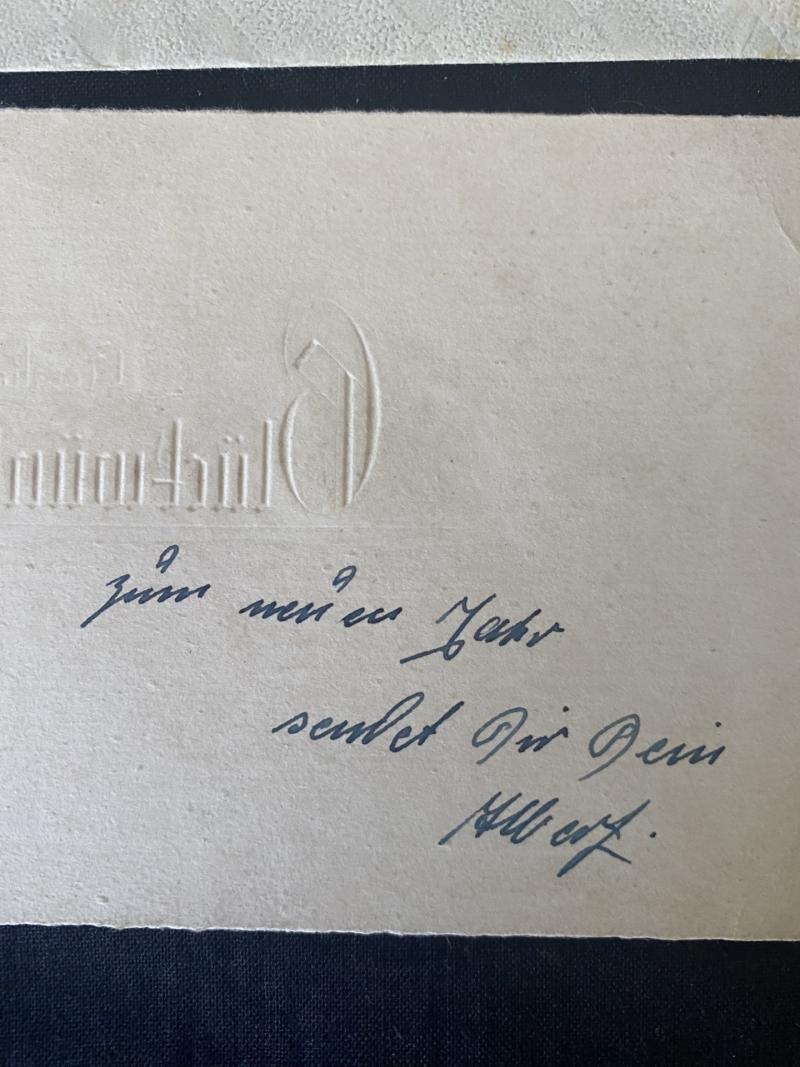 Glückwün
zum neuen Jahr
sendet Dir Dein
Albert.